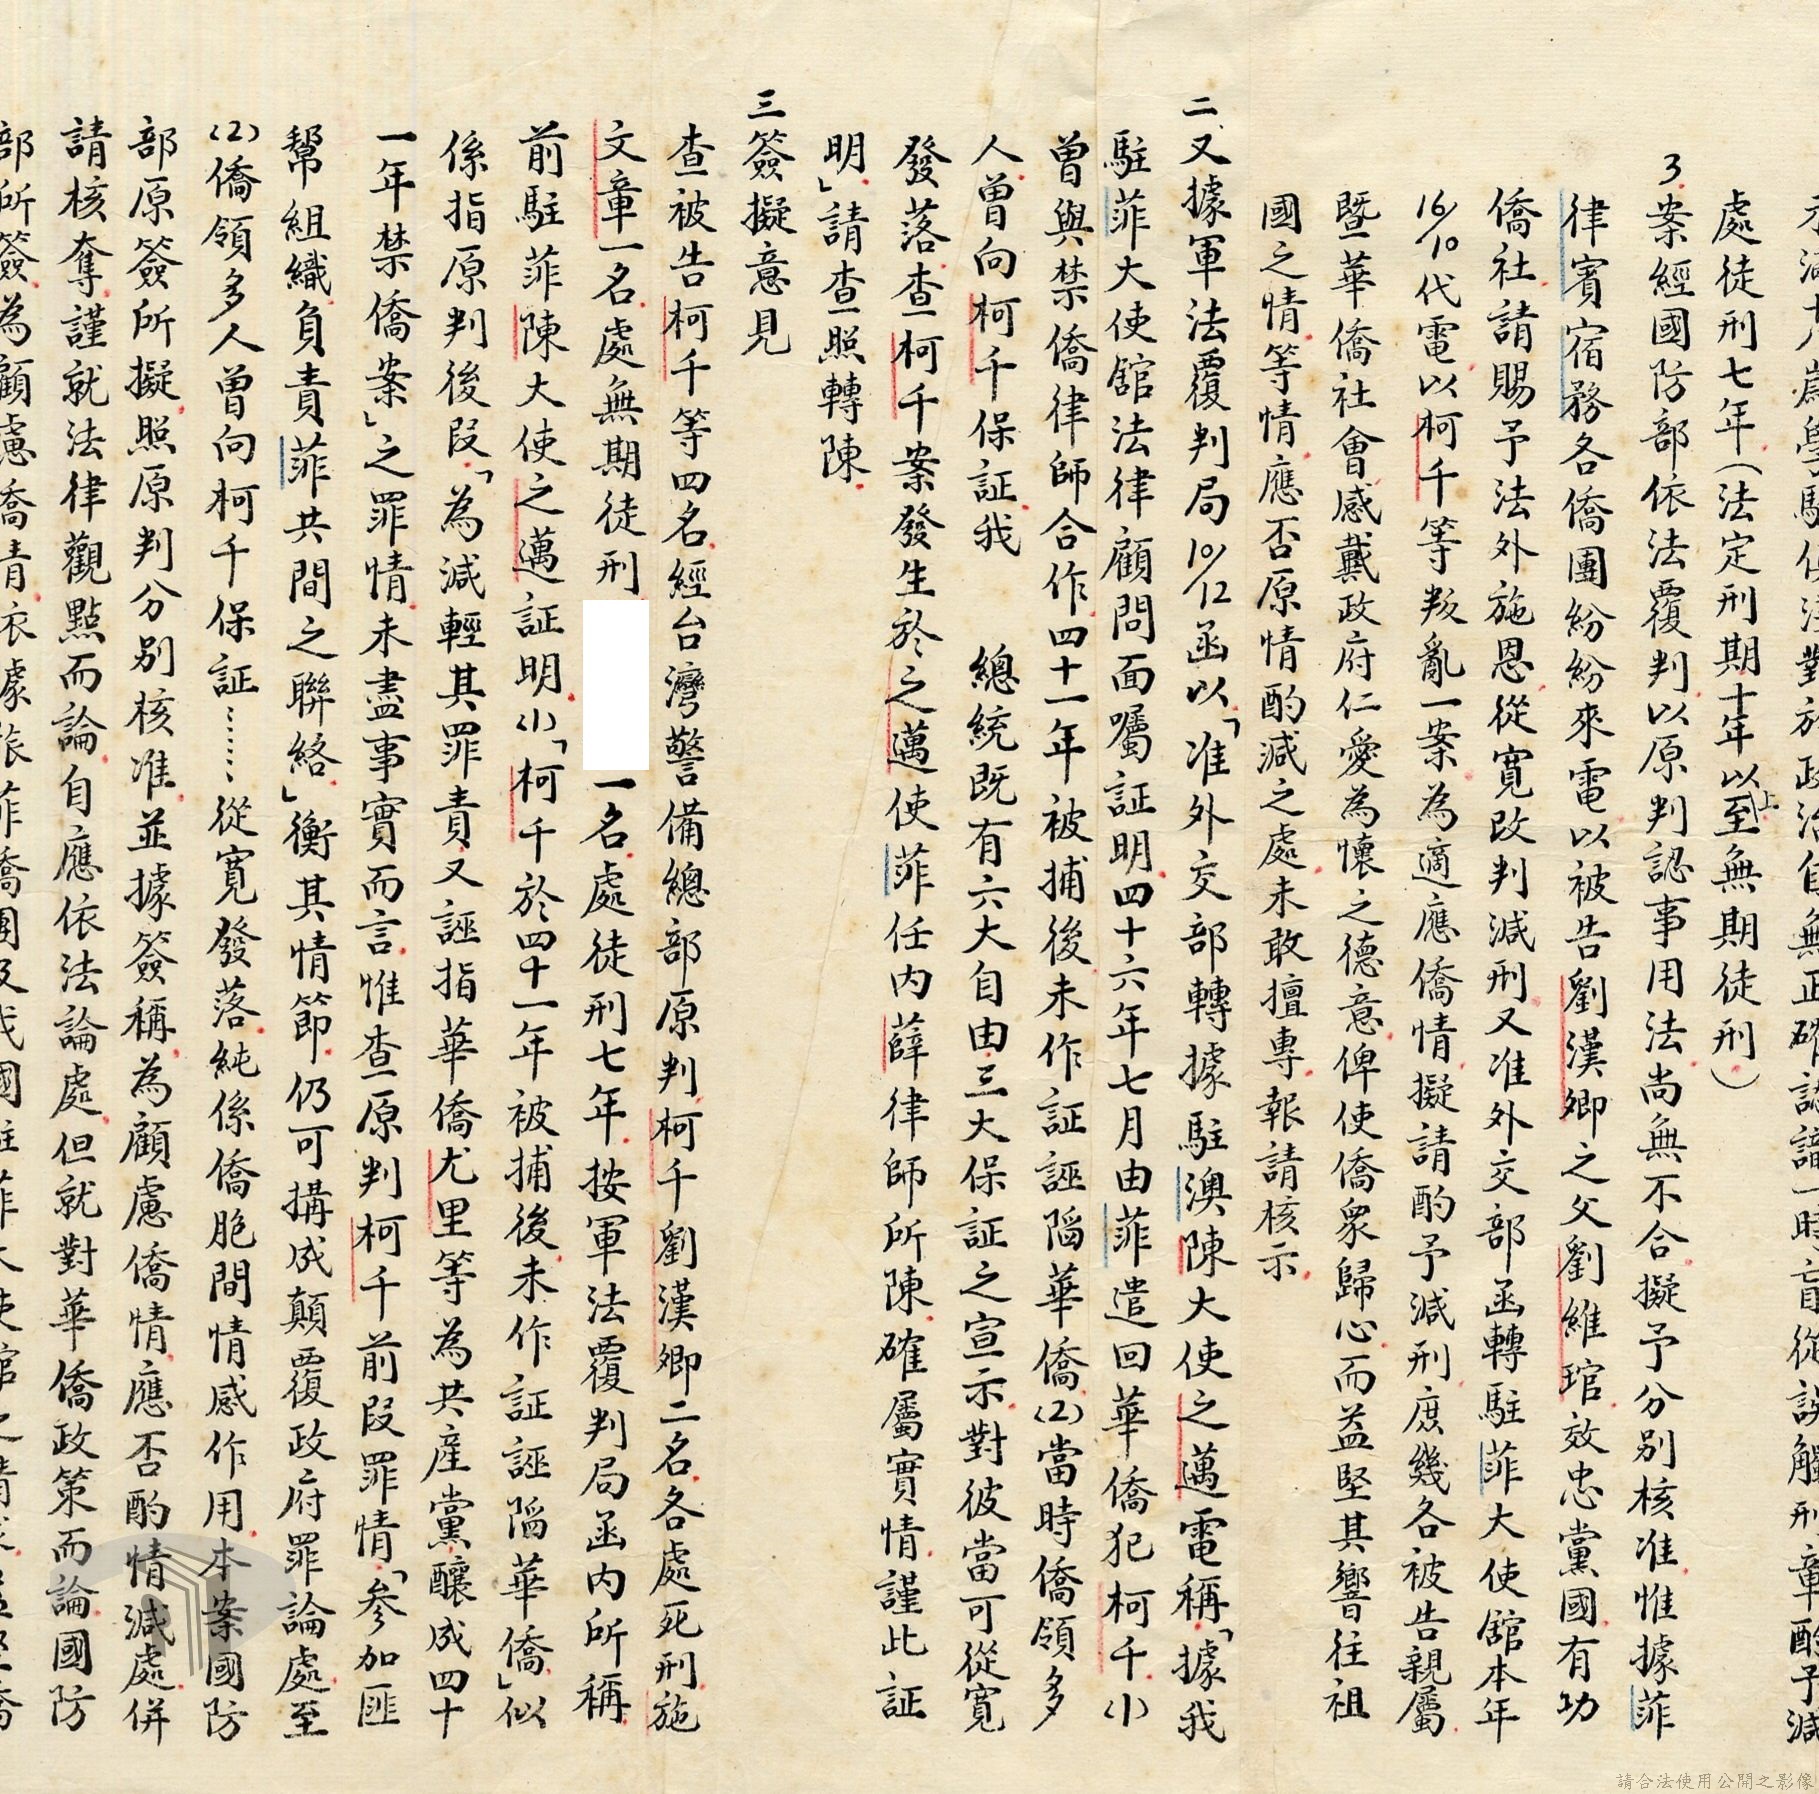 處徒刑七年(法定刑期十年以上至無期徒刑)
3.案經國防部依法覆判以原判認事用法尚無不合擬予分別核准惟據菲
律賓宿務各僑團紛紛來電以被告劉漢卿之父劉維琯效忠黨國有功
僑社請賜予法外施恩從寬改判減刑又准外交部函轉駐菲大使館本年
16/10代電以柯千等叛亂一案為適應僑情擬請酌予減刑庶幾各被告親屬
暨華僑社會感戴政府仁愛為懷之德意俾使僑衆歸心而益堅其響往祖
國之情等情應否原情酌減之處未敢擅專報請核示
二又據軍法覆判局10/12函以「准外交部轉據駐澳陳大使之邁電稱「據我
駐菲大使館法律顧問面囑証明四十六年七月由菲遣回華僑犯柯千(1)
曾與禁僑律師合作四十一年被捕後未作証誣陷華僑(2)當時僑領多
人曾向柯千保証我 總統既有六大自由三大保証之宣示對彼當可從寬
發落查柯千案發生於之邁使菲任内薛律師所陳確屬實情謹此証
明」請查照轉陳
三簽擬意見
查被告柯千等四名經台灣警備總部原判柯千劉漢卿二名各處死刑施
文章一名處無期徒刑 一名處徒刑七年按軍法覆判局函内所稱
前駐菲陳大使之邁証明(1)「柯千於四十一年被捕後未作証誣陷華僑」似
係指原判後段「為減輕其罪責又誣指華僑尤里等為共產黨釀成四十
一年禁僑案」之罪情未盡事實而言惟查原判柯千前段罪情「參加匪
幫組織負責菲共間之聯絡」衡其情節仍可搆成顛覆政府罪論處至
(2)僑領多人曾向柯千保証……從寬發落純係僑胞間情感作用本案國防
部原簽所擬照原判分別核准並據簽稱為顧慮僑情應否酌情減處併
請核奪謹就法律觀點而論自應依法論處但就對華僑政策而論國防
請合法使用公開之影像